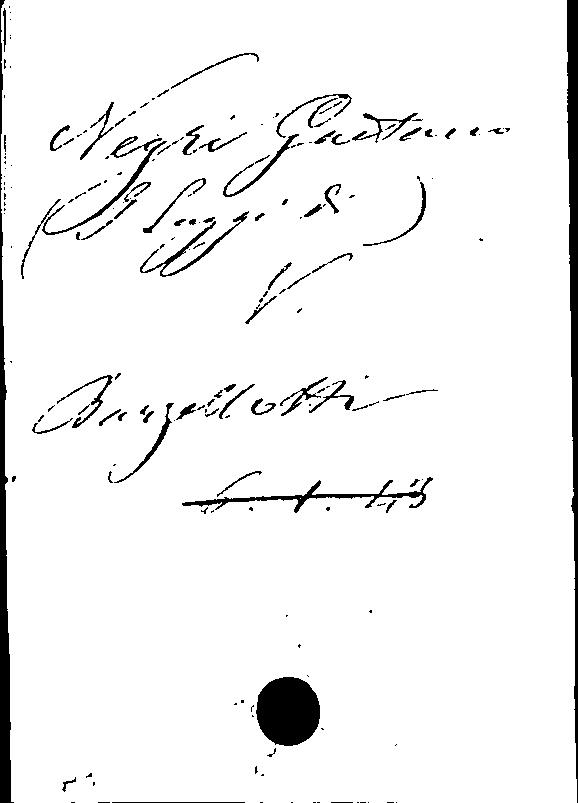 Negri Gaetano
(I Saggi di )
V.
Barzellotti
6. 1. 43